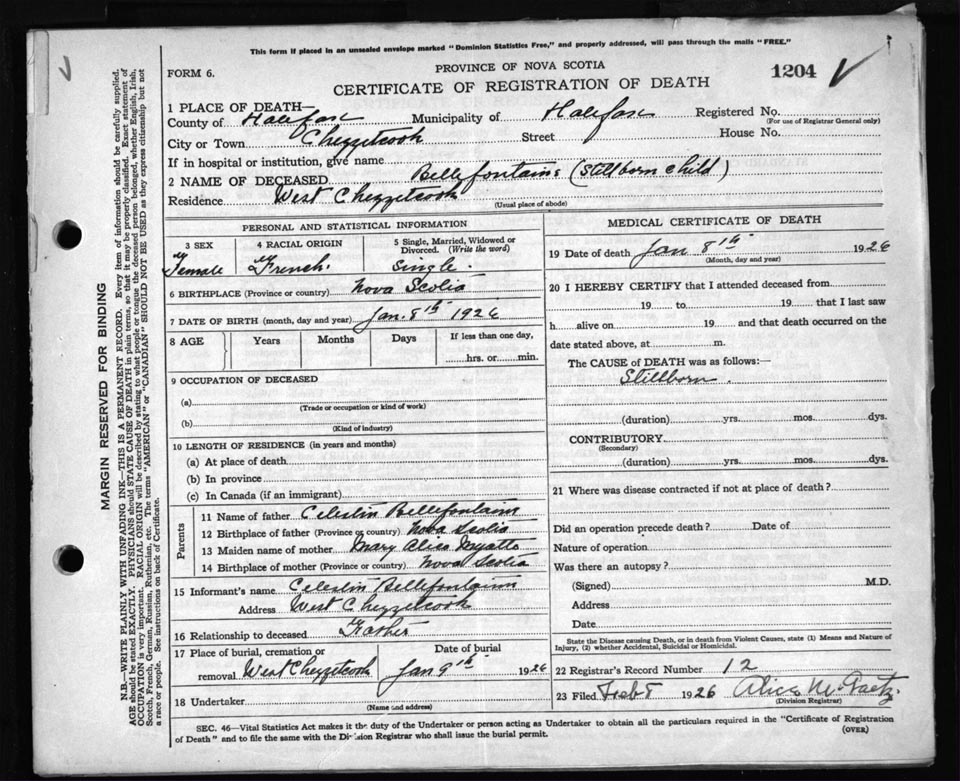 This form if placed in an unsealed envelope marked "Dominion Statistics Free," and properly addressed, will pass through the mails "FREE."
FORM 6.
PROVINCE OF NOVA SCOTIA
CERTIFICATE OF REGISTRATION OF DEATH
1204
1 PLACE OF DEATH—
County of Halifax Municipality of Halifax Registered No.
(For use of Registrar General only)
City or Town Chezzetcook Street House No.
If in hospital or institution, give name
2 NAME OF DECEASED Bellefontaine (Stillborn child)
Residence West Chezzetcook
(Usual place of abode)
PERSONAL AND STATISTICAL INFORMATION
3 SEX 4 RACIAL ORIGIN 5 Single, Married, Widowed or Divorced. (Write the word)
Female French. Single.
6 BIRTHPLACE (Province or country) Nova Scotia
7 DATE OF BIRTH (month, day and year) Jan. 8th 1926
8 AGE Years Months Days If less than one day,
hrs. or min.
9 OCCUPATION OF DECEASED
(a)
(Trade or occupation or kind of work)
(b)
(Kind of industry)
10 LENGTH OF RESIDENCE (in years and months)
(a) At place of death
(b) In province
(c) In Canada (if an immigrant)
Parents
11 Name of father Celestin Bellefontaine
12 Birthplace of father (Province or country) Nova Scotia
13 Maiden name of mother Mary Alice Myatte
14 Birthplace of mother (Province or country) Nova Scotia
15 Informant's name Celestin Bellefontaine
Address West Chezzetcook
16 Relationship to deceased Father
17 Place of burial, cremation or removal Date of burial
West Chezzetcook Jan 9th 1926
18 Undertaker
(Name and address)
MEDICAL CERTIFICATE OF DEATH
19 Date of death Jan 8th 1926
(Month, day and year)
20 I HEREBY CERTIFY that I attended deceased from
19 to 19 that I last saw
h alive on 19 and that death occurred on the
date stated above, at m.
The CAUSE of DEATH was as follows:—
Stillborn.
(duration) yrs. mos. dys.
CONTRIBUTORY
(Secondary)
(duration) yrs. mos. dys.
21 Where was disease contracted if not at place of death?
Did an operation precede death? Date of
Nature of operation
Was there an autopsy?
(Signed) M.D.
Address
Date
State the Disease causing Death, or in death from Violent Causes, state (1) Means and Nature of
Injury, (2) whether Accidental, Suicidal or Homicidal.
22 Registrar's Record Number 12
23 Filed 1926 Alice M
(Division Registrar)
SEC. 46—Vital Statistics Act makes it the duty of the Undertaker or person acting as Undertaker to obtain all the particulars required in the "Certificate of Registration
of Death" and to file the same with the Division Registrar who shall issue the burial permit.
(OVER)
MARGIN RESERVED FOR BINDING
N.B.—WRITE PLAINLY WITH UNFADING INK—THIS IS A PERMANENT RECORD. Every item of information should be carefully supplied.
AGE should be stated EXACTLY. PHYSICIANS should STATE CAUSE OF DEATH in plain terms, so that it may be properly classified. Exact statement of
OCCUPATION is very important. RACIAL ORIGIN will be described by stating to what people or tongue the deceased person belonged, whether English, Irish,
Scotch, French, German, Russian, Ruthenian, etc. The terms "AMERICAN" or "CANADIAN" SHOULD NOT BE USED as they express citizenship but not
a race or people. See instructions on back of Certificate.